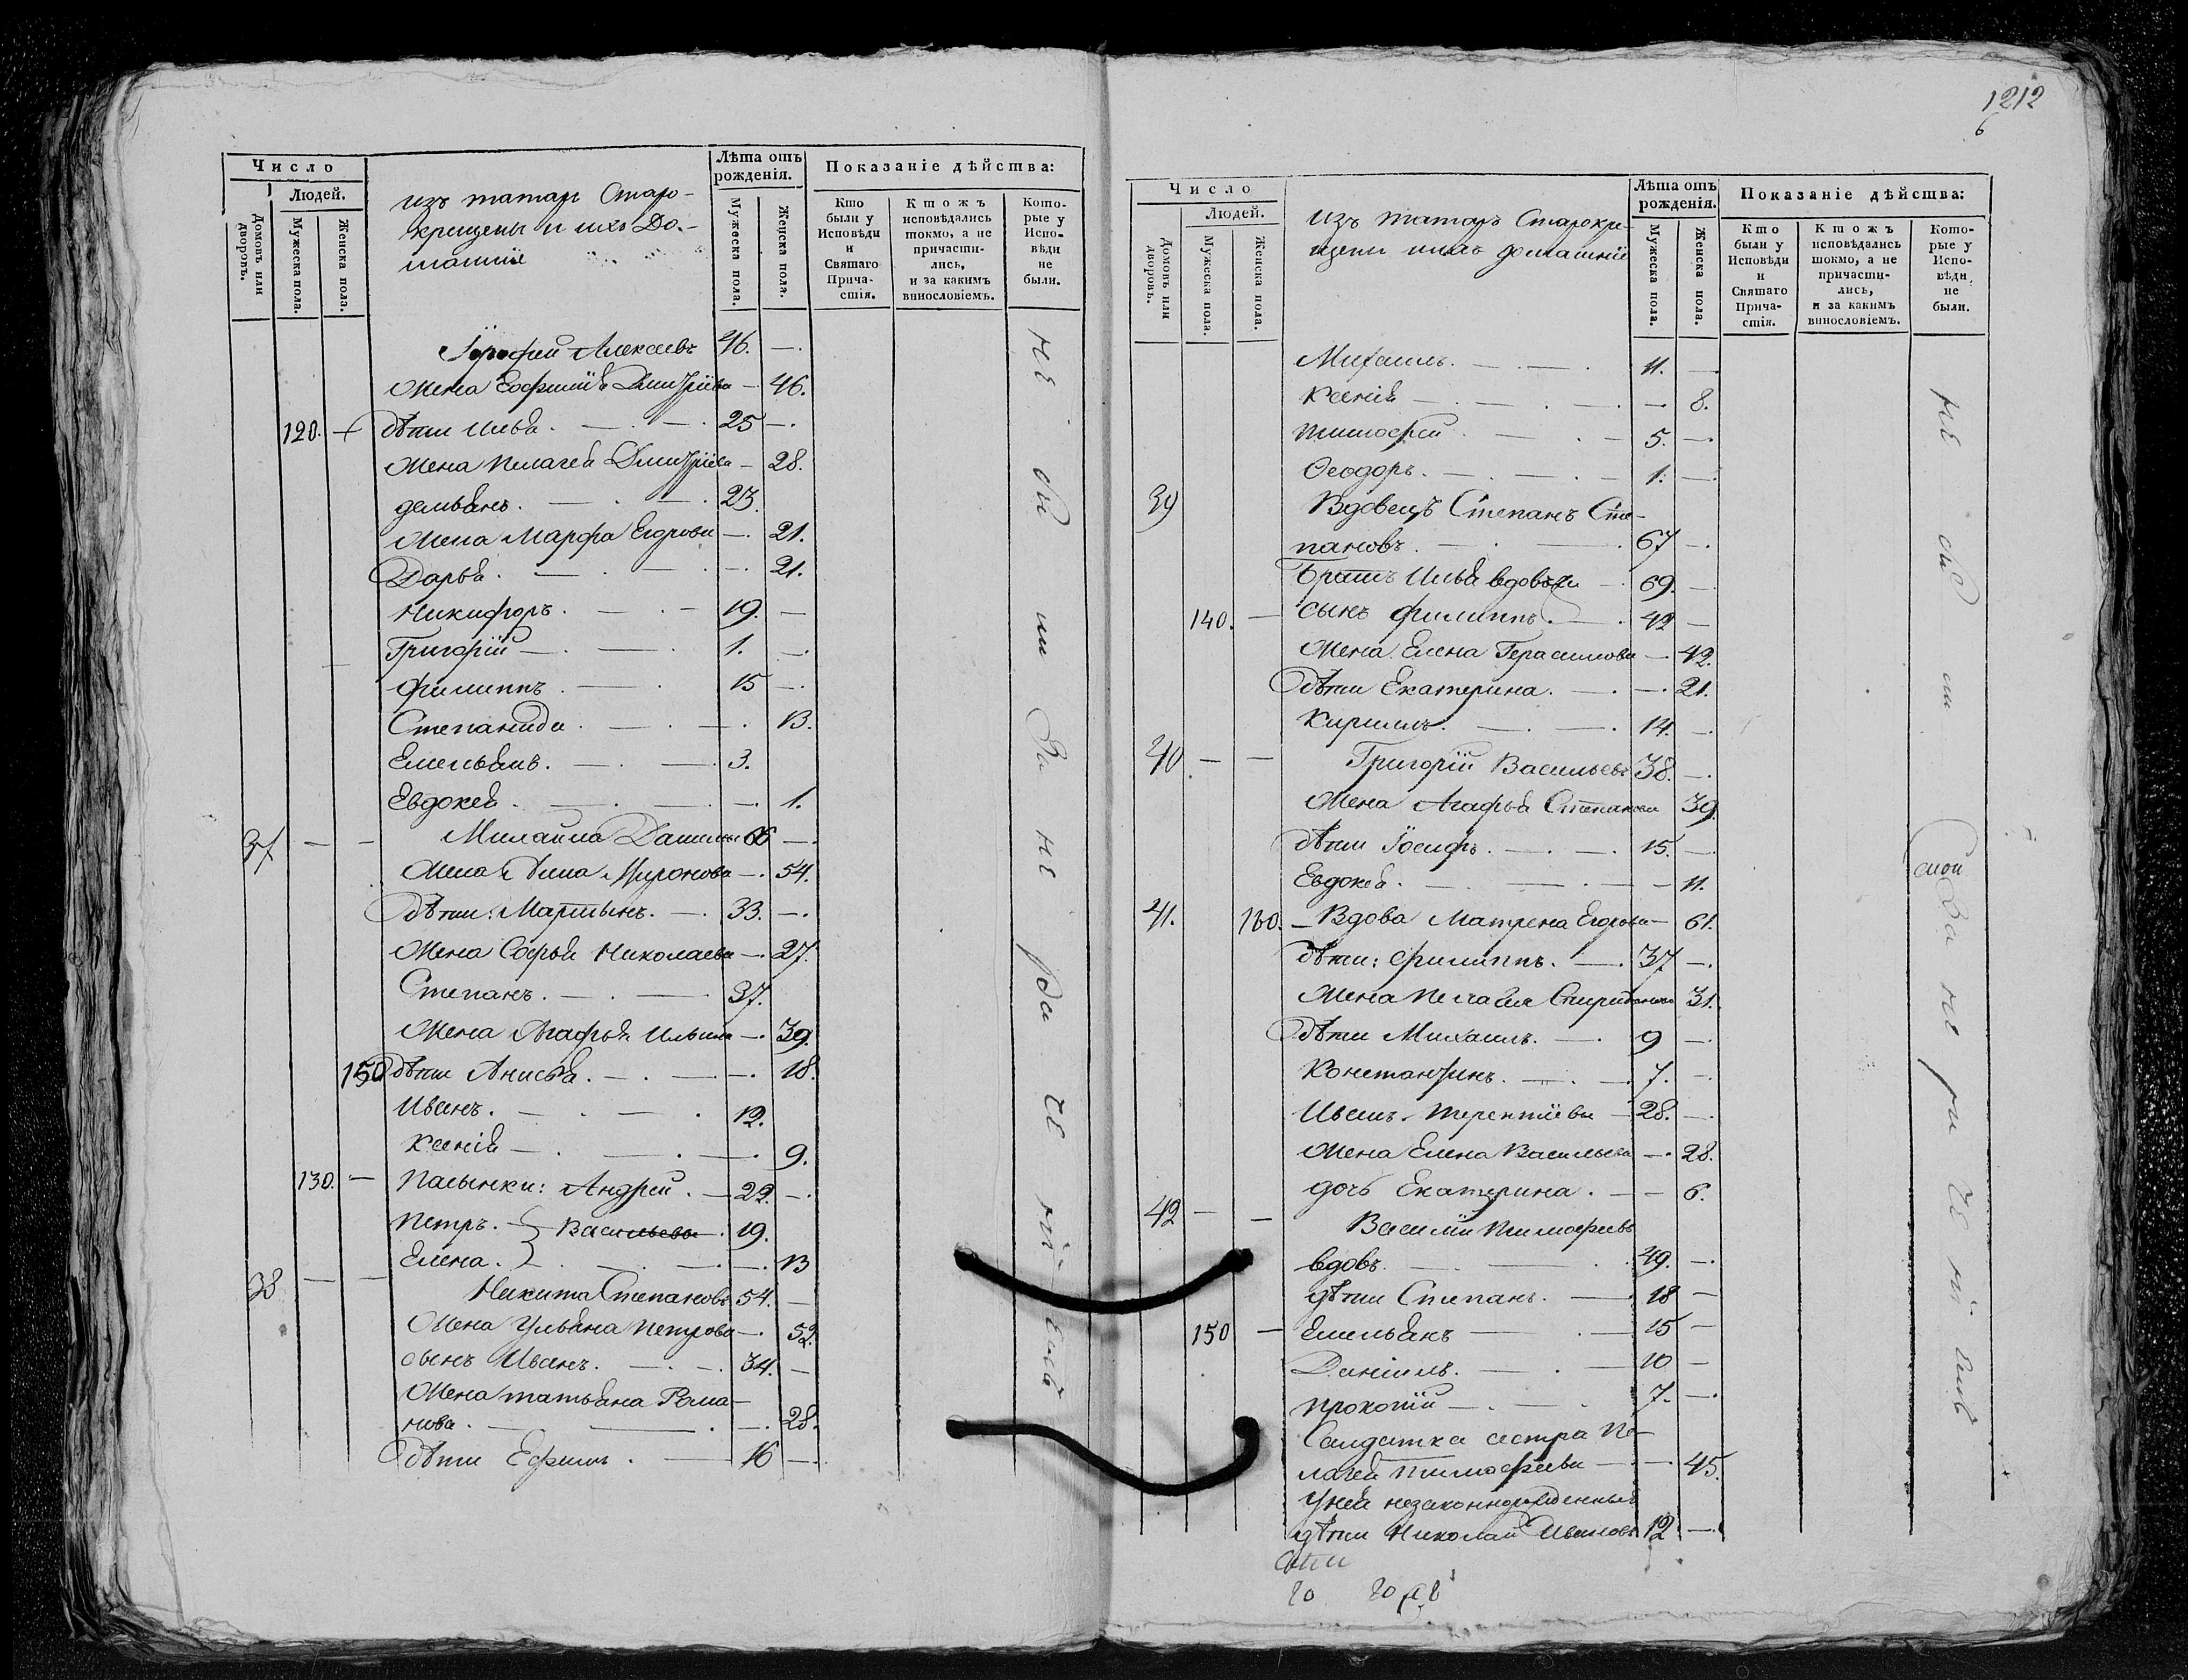 Число
Людей.
Домовъ или дворовъ.
Мужеска пола.
Женска пола.
изъ татаръ Старо-
крещены и ихъ До-
машнiе
Лѣта отъ рожденiя.
Мужеска пола.
Женска пола.
Показанiе дѣйства:
Кто были у Исповѣди и Святаго Прича-стiя.
Ктожъ исповѣдались токмо, а не причасти-лись, и за какимъ винословiемъ.
Кото-рые у Испо-вѣди не были.
Алексеевъ 46. —
Жена Евфимiя Дмитрiева — 46.
120. — дѣти Илья. 25 —
Жена Пелагея Дмитрiева — 28.
демьянъ. 23.
Жена Марфа Егорова — 21.
Дарья. — 21.
Никифоръ. 19. —
Григорiй — 1. —
филиппъ. 15 —
Степанида. — 13.
Емельянъ. 3.
Евдокея. — 1.
37 — — Михайла Данилы 66 —
Жена Анна Миронова — 54.
дѣти: Мартынъ. 33. —
Жена Софья Николаева — 27.
Степанъ. 37.
Жена Агафья Ильина — 39.
150 дѣти Анисья. — 18.
Иванъ. 12.
Ксенiя — 9.
130. — Пасынки: Андрей. 22. —
Петръ. Васильевы 19.
Елена. — 13
38 — — Никита Степановъ 54. —
Жена Ульяна Петрова — 52.
сынъ Иванъ. 34. —
Жена татьяна Рома-
нова. — 28.
дѣти Ефимъ. 16 —
не бы ли за не ра че нi емъ
1212
6
Число
Людей.
Домовъ или дворовъ.
Мужеска пола.
Женска пола.
Изъ татаръ Старокре-
щены ихъ домашнiе
Лѣта отъ рожденiя.
Мужеска пола.
Женска пола.
Показанiе дѣйства:
Кто были у Исповѣди и Святаго Прича-стiя.
Ктожъ исповѣдались токмо, а не причасти-лись, и за какимъ винословiемъ.
Кото-рые у Испо-вѣди не были.
Михаилъ. 11. —
Ксенiя — 8.
тимофей. 5. —
Ѳеодоръ. 1. —
39 Вдовецъ Степанъ Сте-
пановъ. 67 —
братъ Илья вдовъ 69. —
140. — сынъ филиппъ. 42 —
Жена Елена Герасимова — 42.
дѣти Екатерина. — 21.
Кириллъ. 14. —
40. — — Григорiй Васильевъ 38. —
Жена Агафья Степанова 39.
дѣти Iосифъ. 15. —
Евдокея. — 11.
41. 160. — Вдова Матрена Егорова — 61.
дѣти: филиппъ. 37 —
Жена Пелагея Спиридонова 31.
дѣти Михаилъ. 9 —
Константинъ. 7. —
Иванъ Терентiевъ 28. —
Жена Елена Васильева — 28.
дочь Екатерина. — 6.
42 — — Василiй тимофеевъ
вдовъ. 49. —
дѣти Степанъ. 18 —
150 — Емельянъ 15 —
Данiилъ. 10 —
Прокопiй 7. —
Салдатка сестра Пе-
лагея тимофеева — 45.
У ней незаконнорожденный
дѣти Николай Ивановъ 12 —
не бы ли за не ра че нi емъ